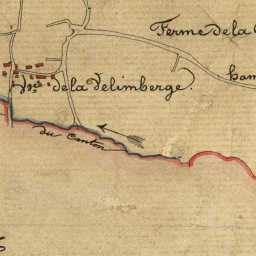 Ferme de la
ham
de la Velimberge.
du Canton